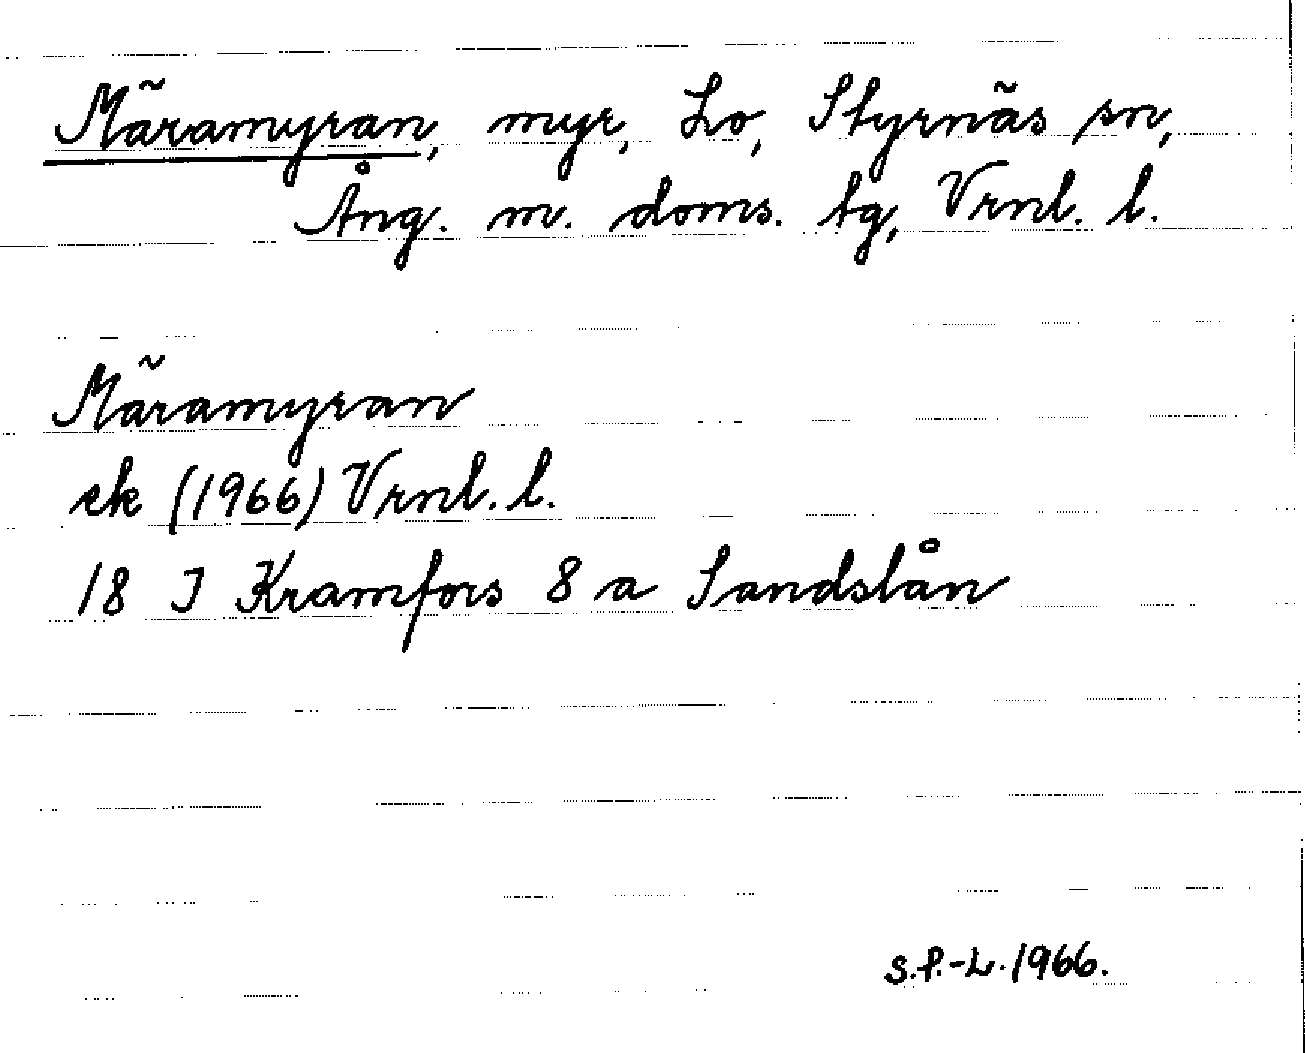 Märamyran, myr, Lo, Styrnäs sn,
Ång. m. doms. tg, Vrnl. l.
Märamyran
ek (1966) Vrnl. l.
18 I Kramfors 8 a Sandslån
S.P.-L. 1966.